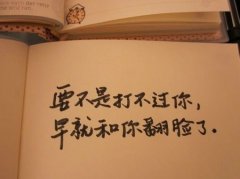 要不是打不过你，
早就和你翻脸了．